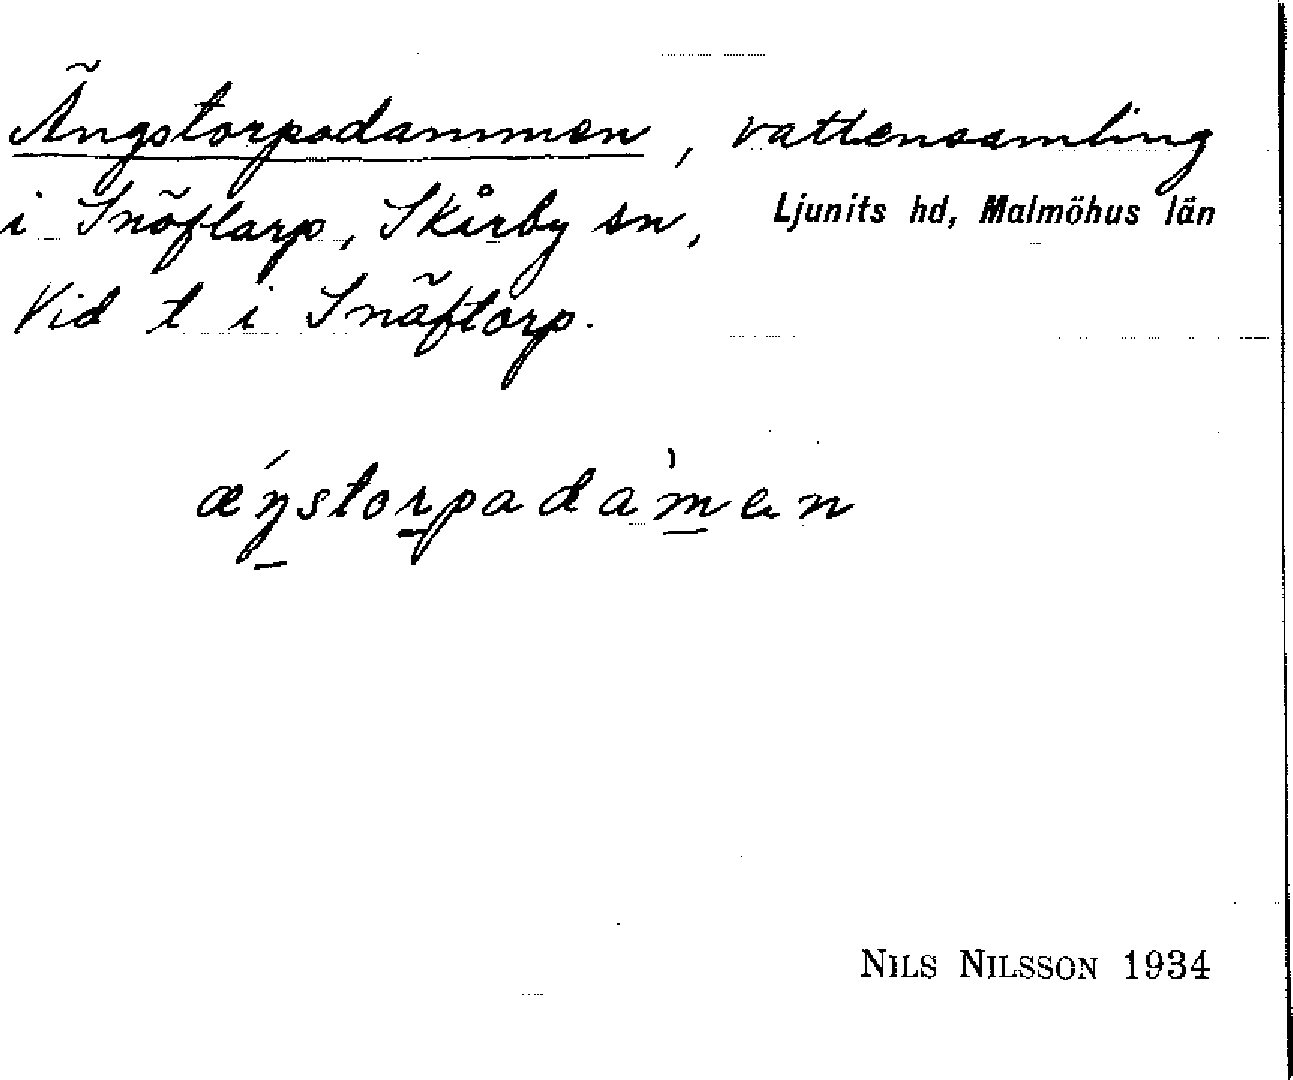 Ängstorpadammen, vattensamling
i Snöflarp, Skårby sn, Ljunits hd, Malmöhus län
Vid t i Snäftorp.
æ´ŋstorpadam̀en
NILS NILSSON 1934